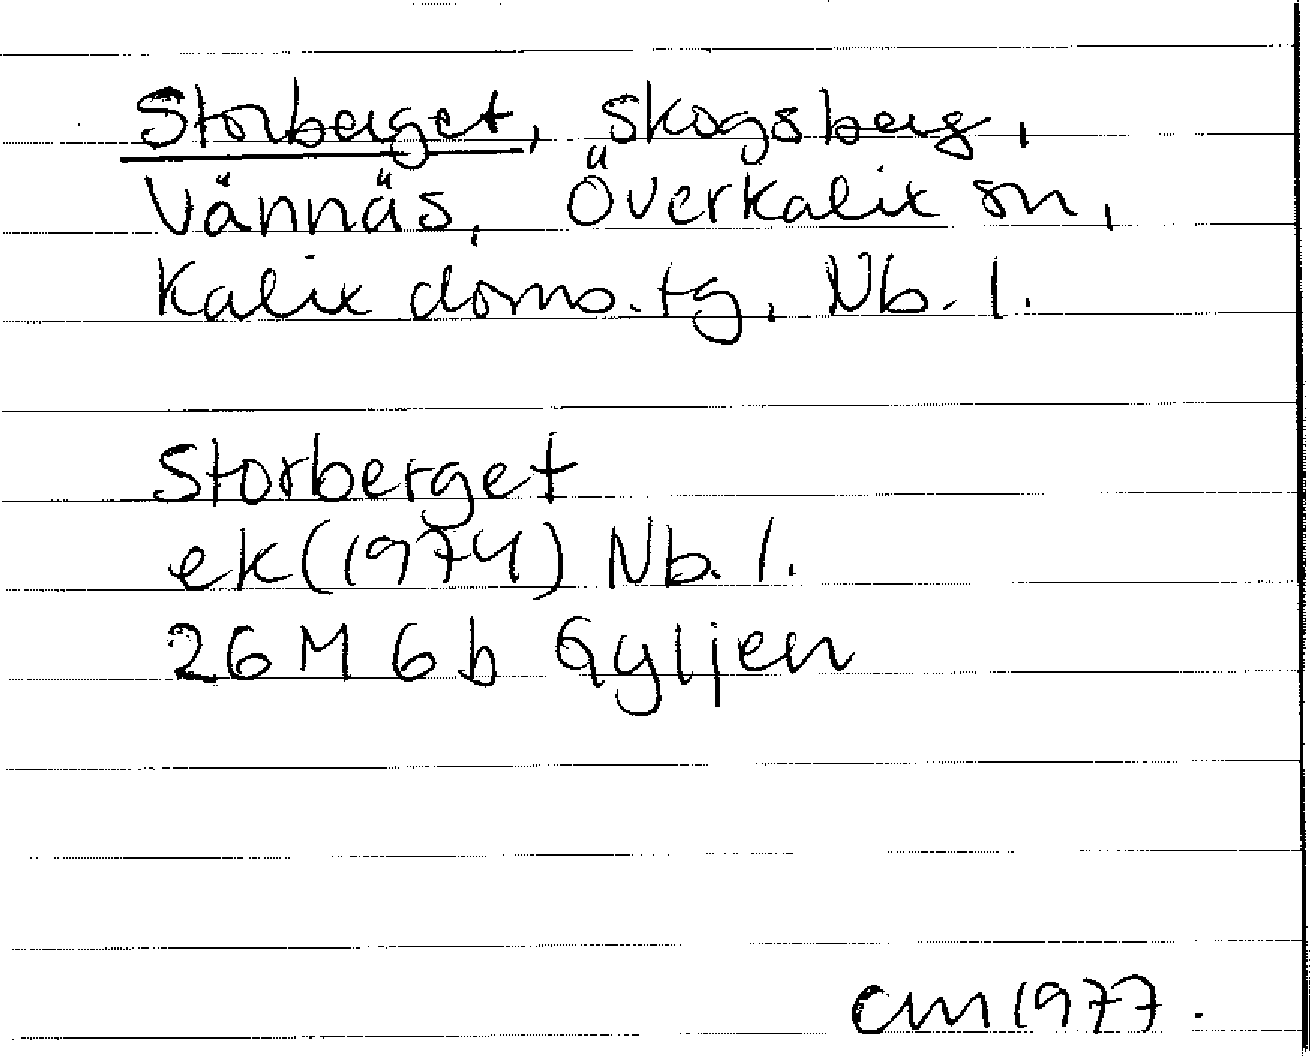 Storberget, skogsberg,
Vännäs, Överkalix sn,
Kalix doms.tg, Nb. l.
Storberget
ek(1974) Nb. l.
26 M 6 b Gyljen
CM 1977.